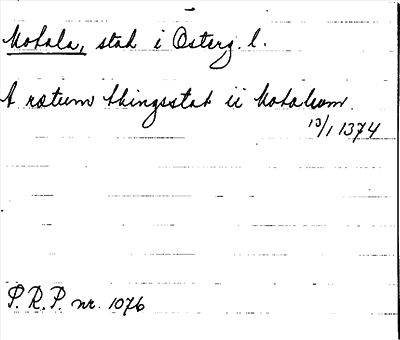 Motala, stad i Österg. l.
A rætum thingsstad ii Motalum.
13/1 1374
P.R.P. nr. 1076